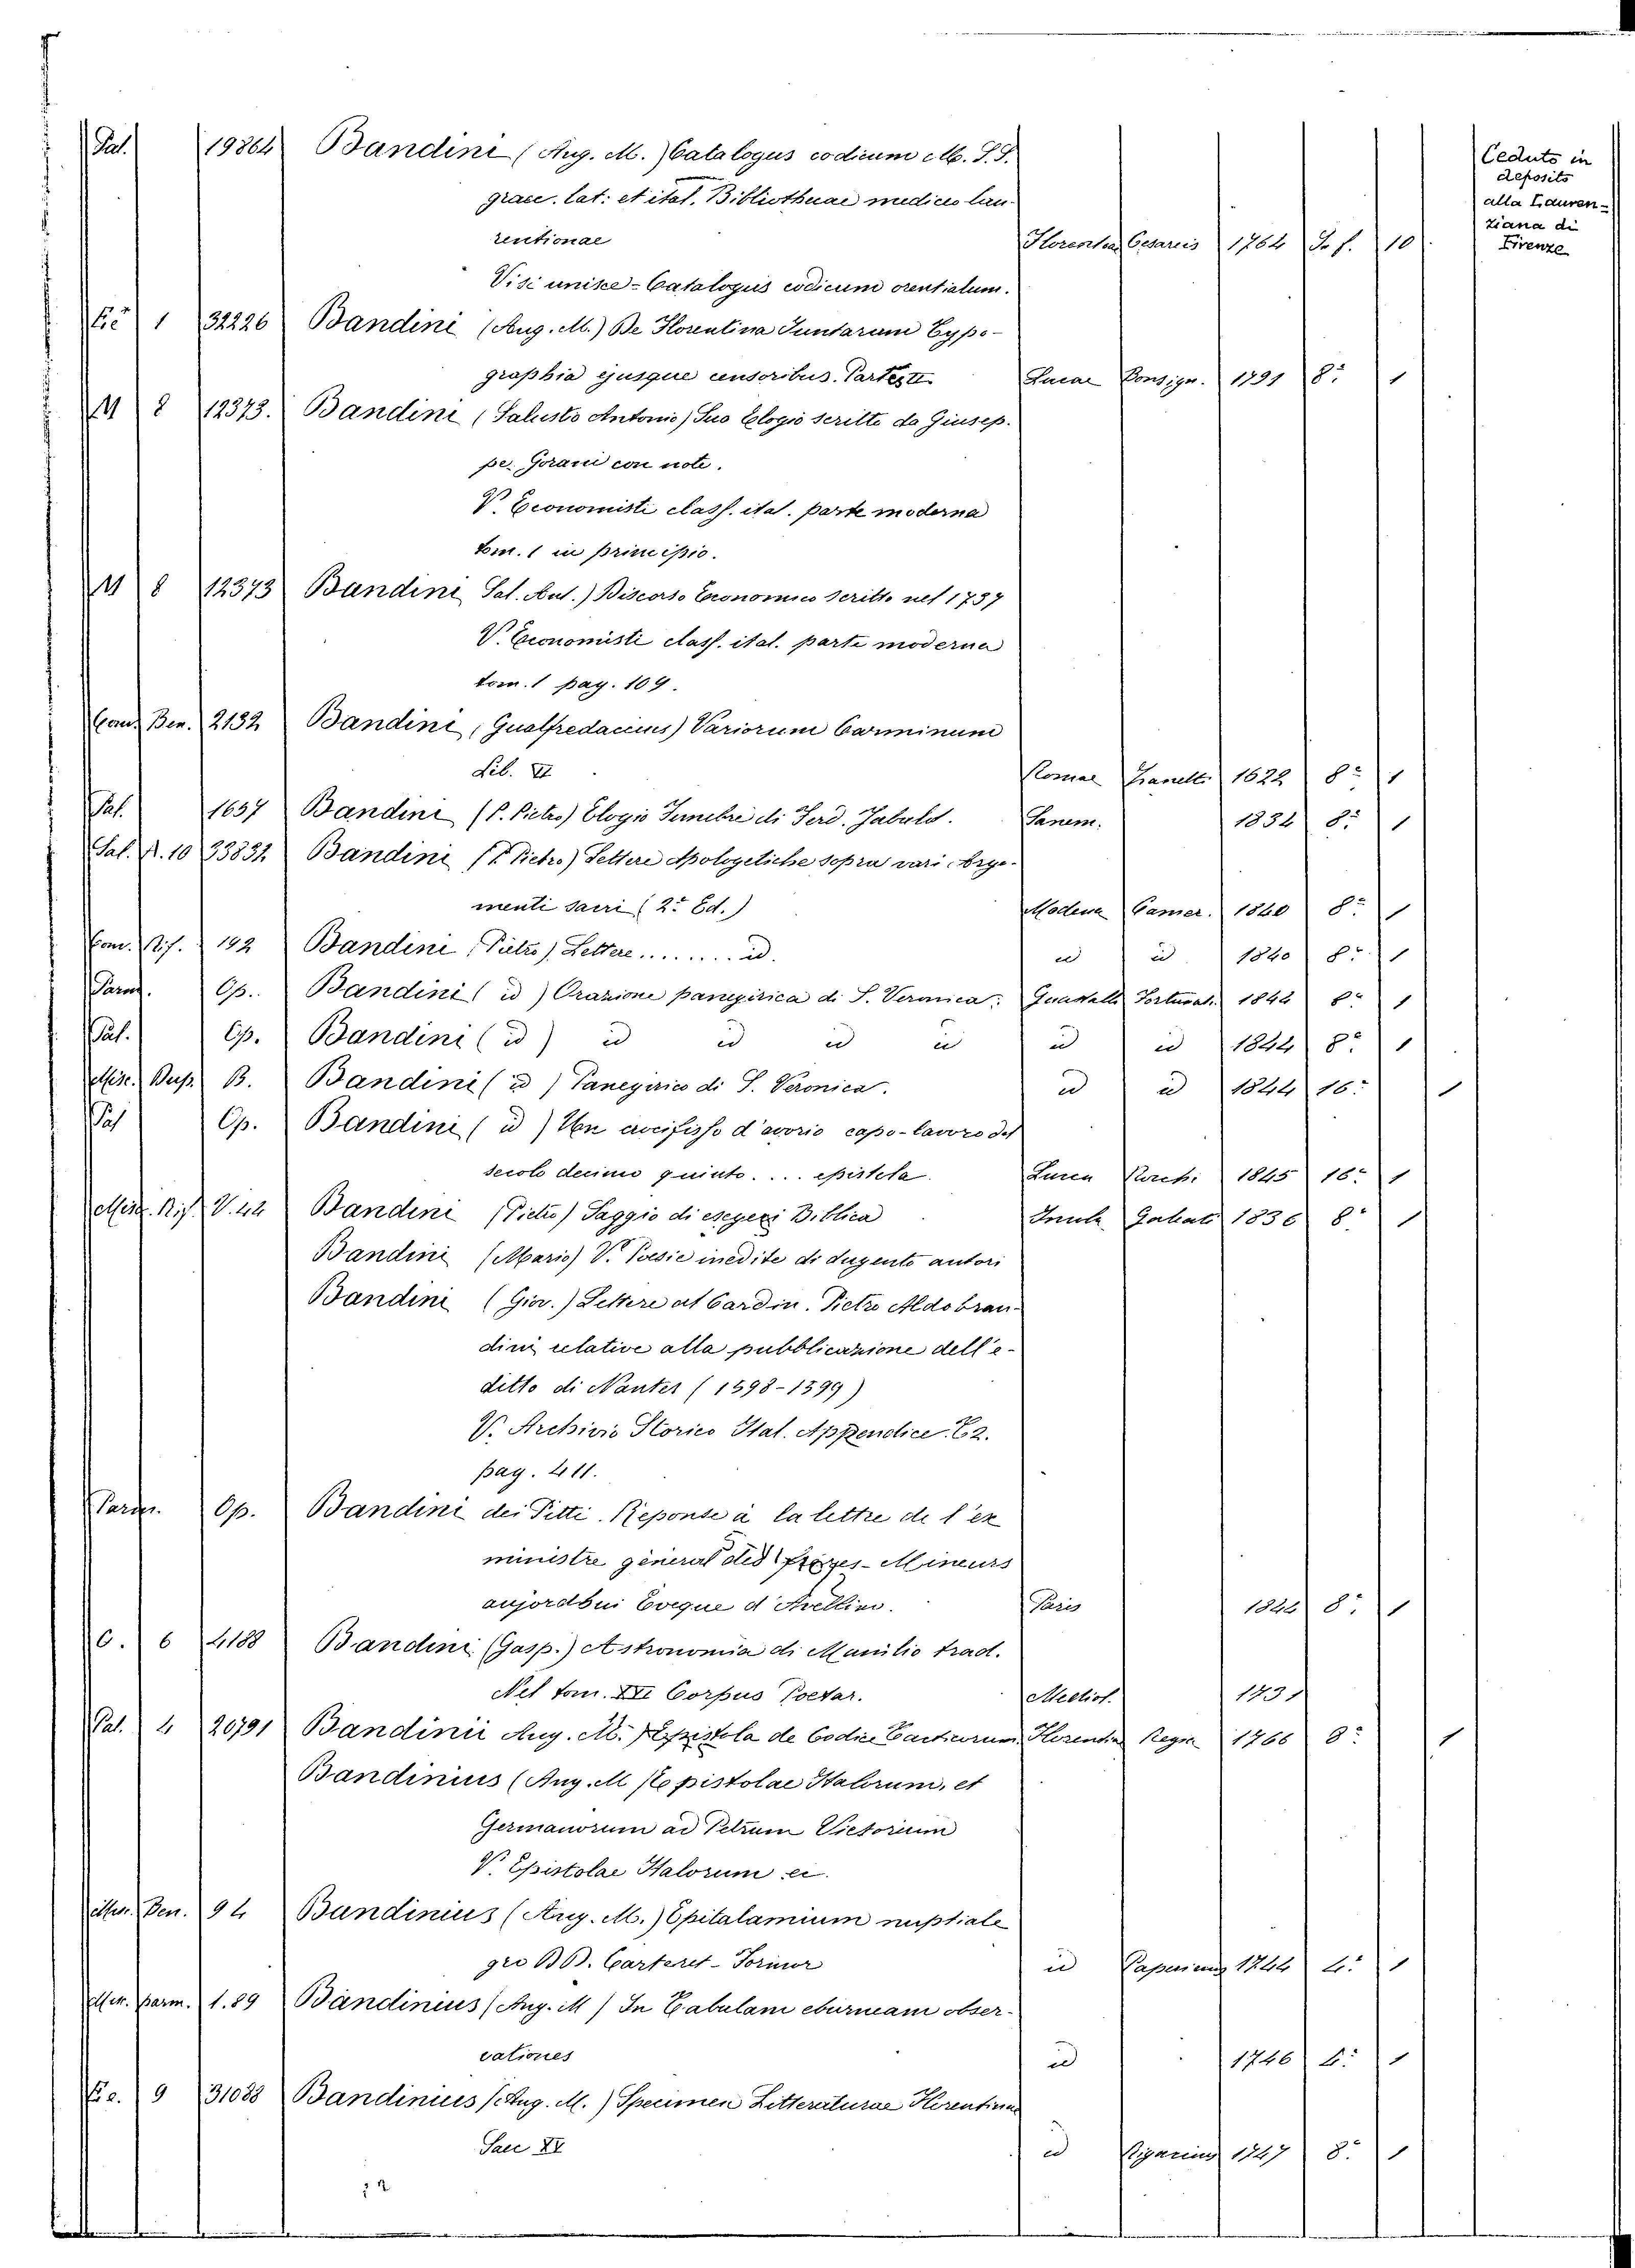 Pal. 19864 Bandini (Aug. M.) Catalogus codicum M. S. S. Ceduto in
deposito
graec. lat: et ital. Bibliothecae mediceo lau- alla Lauren-
ziana di
rentionae Florentiae Cesareis 1764 In f. 10 Firenze
Visi unisce - Catalogus codicum orentialum.
1 32226 Bandini (Aug. M.) De Florentina Juntarum Typo-
graphia ejusque censoribus. Partes II Lucae Bonsign. 1791 8° 1
M 8 12373. Bandini (Salusto Antonio) Suo Elogio scritto da Giusep.
pe. Gorani con note.
V. Economisti class. ital. parte moderna
tom. 1 in principio.
M 8 12373 Bandini Sal. Ant.) Discorso Economico scritto nel 1737
V. Economisti class. ital. parte moderna
tom. 1 pag. 109.
Ben. 2132 Bandini, Gualfredaccius) Variorum Carminum
Lib. VI Romae Zanetti 1622 8° 1
Pal. 1657 Bandini (P. Pietro) Elogio Funebre di Ferd. Jabalot. Sanem. 1834 8° 1
Sal. A. 10 33832 Bandini (P. Pietro) Lettere Apologetiche sopra vari Argo-
menti sacri (2° Ed.) Modena Camer. 1840 8° 1
Com. Rif. 192 Bandini, Pietro) Lettere......... id. id id 1840 8° 1
Parm. Op. Bandini ( id ) Orazione panegirica di S. Veronica: Guastalla Fortunati 1844 8° 1
Pal. Op. Bandini ( id ) id id id id id id 1844 8° 1
Misc. Busp. B. Bandini ( id ) Panegirico di S. Veronica. id id 1844 16° 1
Pal Op. Bandini ( id ) Un crocifisso d'avorio capo-lavoro del
secolo decimo quinto.... epistola. Lucca Rocchi 1845 16° 1
Misc. Rif. V. 44 Bandini (Pietro) Saggio di esegesi Biblica Imola Galeati 1836 8° 1
Bandini (Mario) V. Poesie inedite di dugento autori
Bandini (Giov.) Lettere al Cardin. Pietro Aldobran-
dini relative alla pubblicazione dell'e-
ditto di Nantes (1598-1599)
V. Archivio Storico Ital. Appendice. T. 2.
pag. 411.
Parm. Op. Bandini dei Pitti. Reponse à la lettre de l'ex
ministre général des freres-Mineurs
aujordhui Eveque d'Avellino. Paris 1824 8° 1
C. 6 4188 Bandini (Gasp.) Astronomia di Manilio trad.
Nel tom. XII Corpus Poetar. Mediol. 1737
Pal. 4 20791 Bandinii Aug. M. Epistola de Codice Florentiae Regia 1766 8° 1
Bandinius (Aug. M.) Epistolae Italorum, et
Germanorum ad Petrum Victorium
V. Epistolae Italorum ec.
Ben. 94 Bandinius (Aug. M.) Epitalamium nuptiale
gro BB. Carteret-Formor id Paperiano 1744 4° 1
Parm. 1.89 Bandinius (Aug. M) In Tabulam eburneam obser-
vationes id 1746 4° 1
9 31088 Bandinius (Aug. M.) Specimen Litteraturae Florentinae
Saec XV id Rigacius 1747 8° 1
22